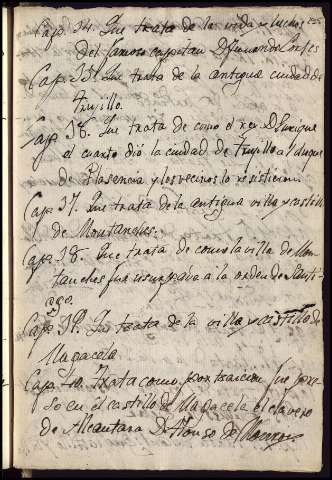 Cap. 34. Que trata de la vida y hechos
del famoso capitan D. Fernando Cortes
Cap. 35. Que trata de la antigua ciudad de
trujillo.
Cap. 38. Que trata de como el rei D. Enrique
el cuarto dió la ciudad de trujillo al duque
de Plasencia y los vecinos lo resistieron.
Cap. 37. Que trata de la antigua villa y castillo
de Montanches.
Cap. 38. Que trata de como la villa de Mon
tanches fue usurpada a la orden de Santi
ago.
Cap. 39. Que trata de la villa y castillo de
Magacela
Cap. 40. Trata como por traicion fue pre
so en el castillo de Magacela el clavero
de Alcantara D. Alonso de Monroy